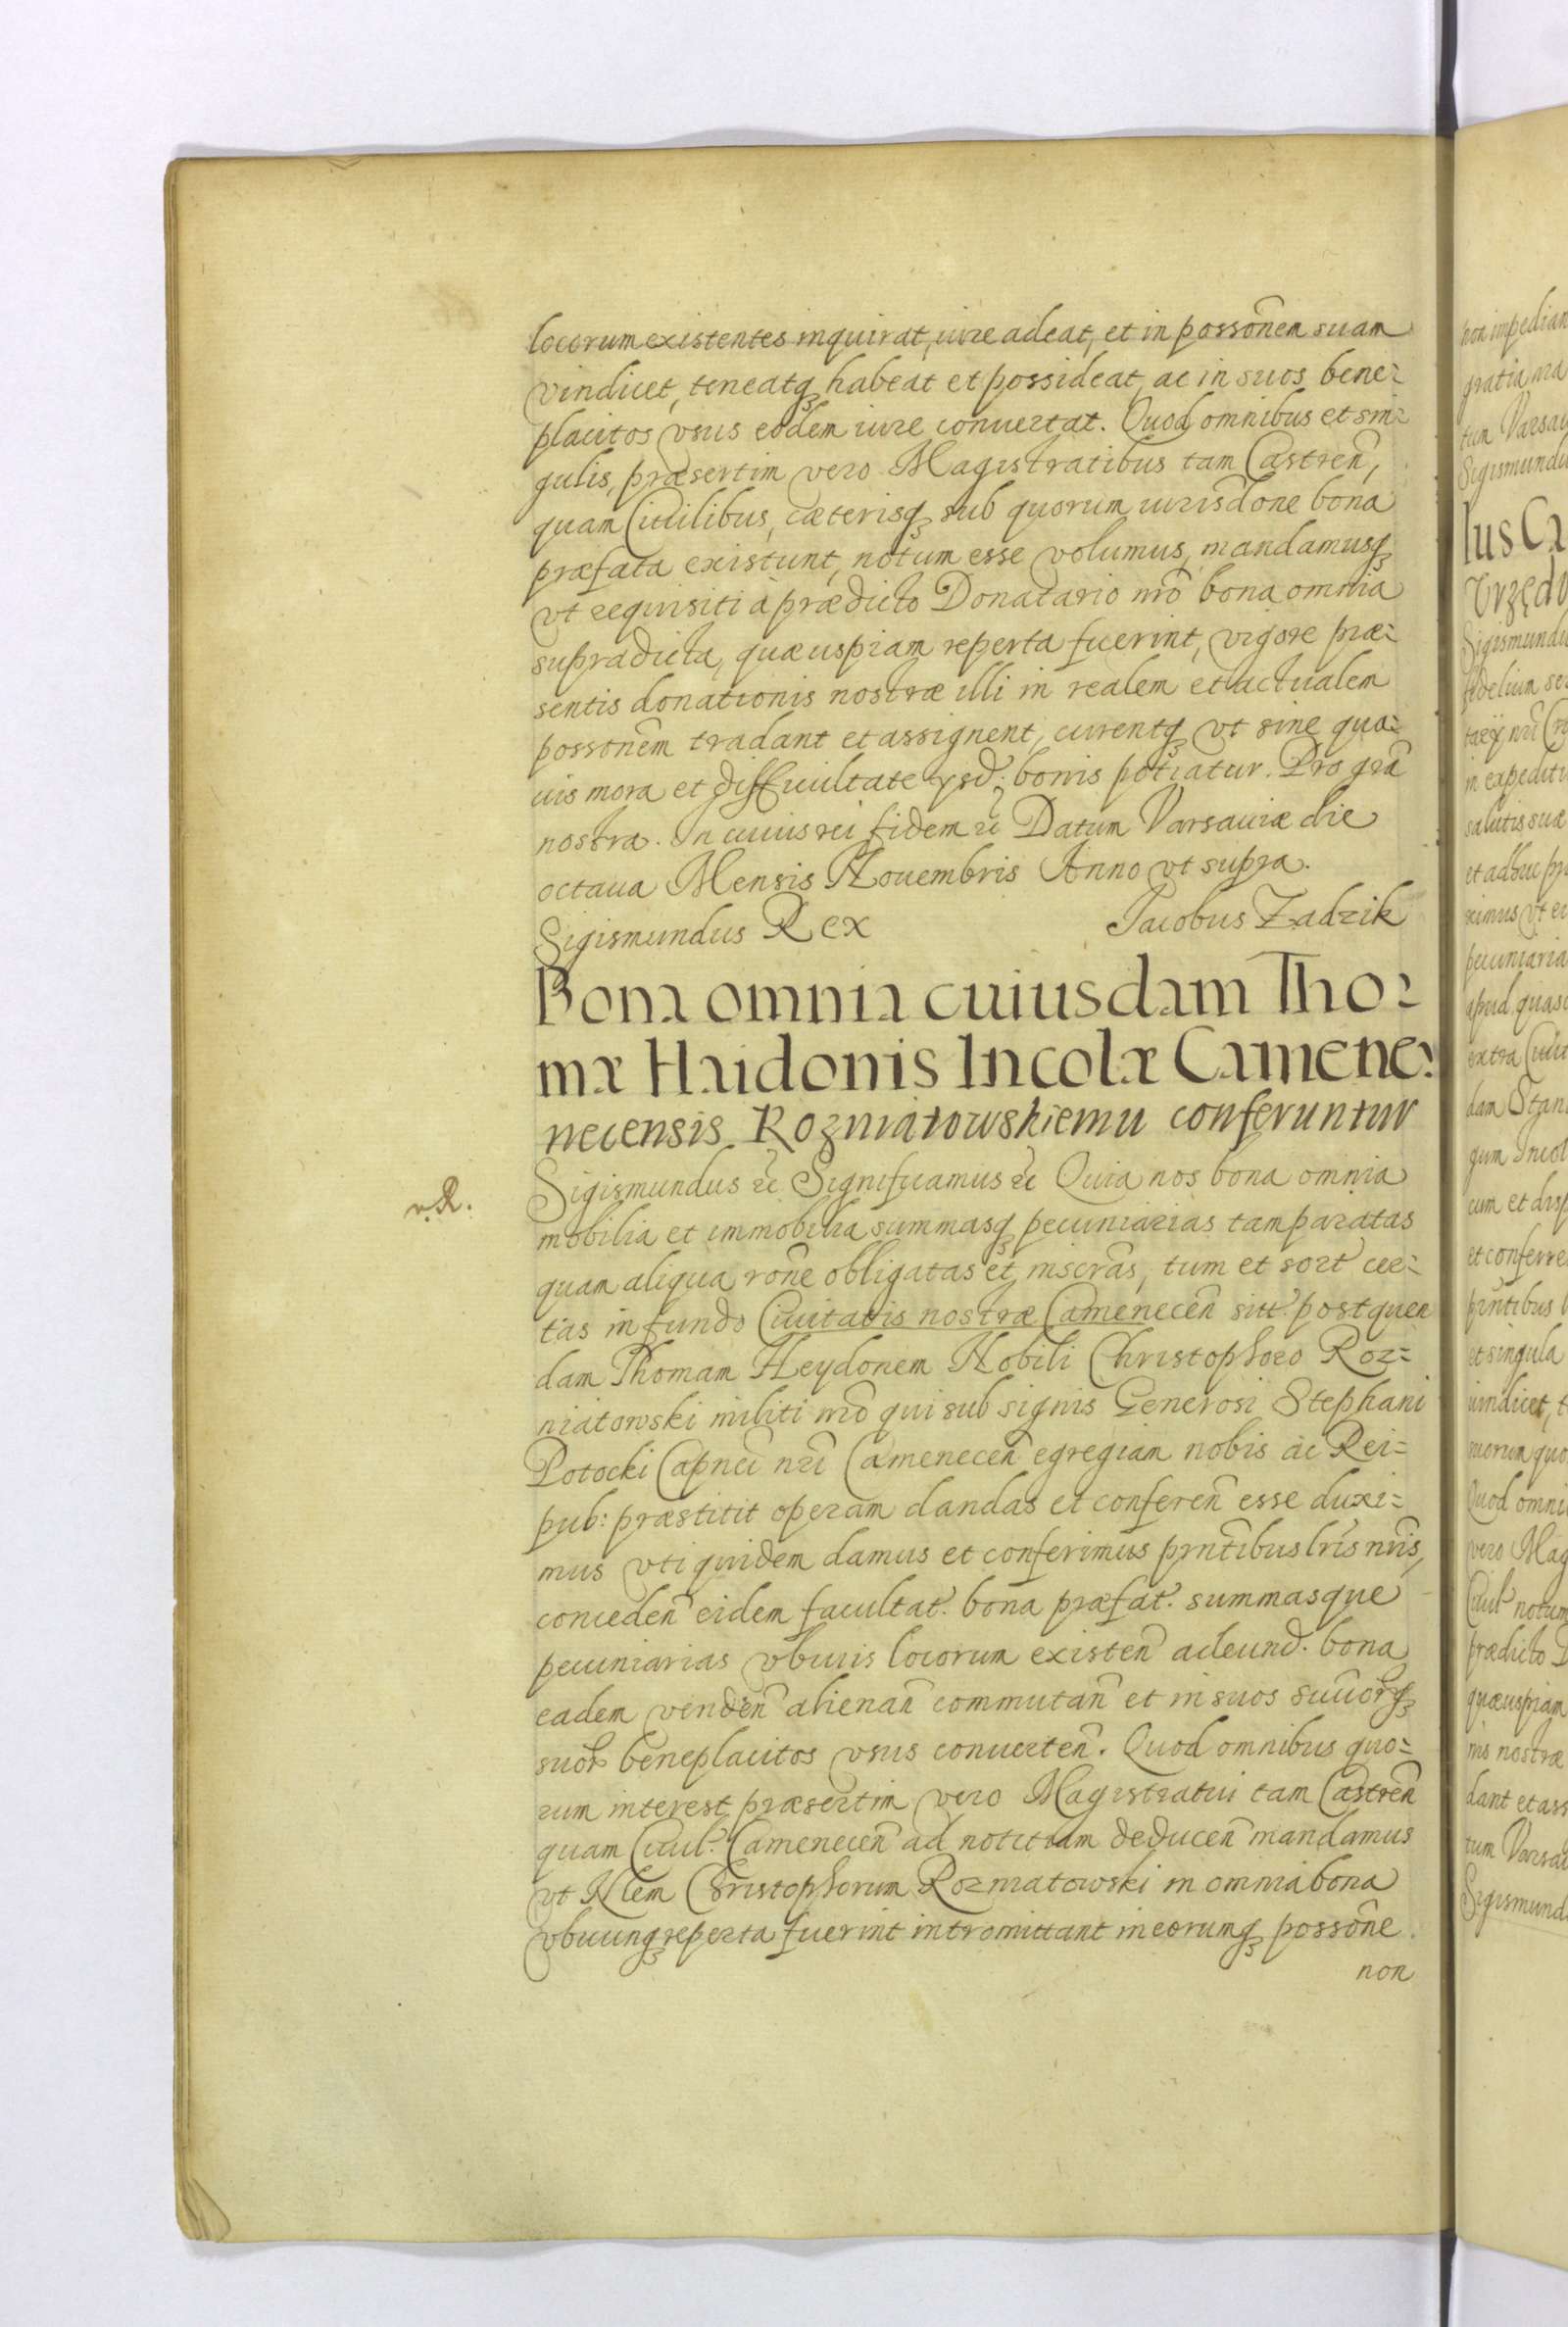 locorum existentes inquirat, iure adeat, et in possoñem suam
vindicet, teneatq₃ habeat et possideat, ac in suos bene=
placitos vsus eodem iure conuertat. Quod omnibus et sin=
gulis, præsertim vero Magistratibus tam Castreñ,
quam Ciuilibus, cæterisq₃ sub quorum iurisdõne bona
præfata existunt, notum esse volumus, mandamusq₃
vt requisiti à prædicto Donatario nrõ bona omnia
supradicta, quæuspiam reperta fuerint, vigore præ=
sentis donationis nostræ illi in realem et actualem
possoñem tradant et assignent, curentq₃ vt sine qua=
uis mora et difficultate ysd: bonis potiatur. Pro grã
nostra. In cuius rei fidem &c̃ Datum Varsauiæ die
octaua Mensis Nouembris Anno vt supra.
Sigismundus Rex Jacobus Zadzik
Bona omnia cuiusdam Tho=
mæ Haidonis Incolæ Camene=
necensis Rozniatowskiemu conferuntur
v. R.
Sigismundus &c̃ Significamus &c̃ Quia nos bona omnia
mobilia et immobilia summasq₃ pecuniarias tam paratas
quam aliqua rõne obligatas et inscrãs, tum et sort cer=
tas in fundo Ciuitatis nostræ Cameneceñ sitt. post quen
dam Thomam Heydonem Nobili Christophoro Roz=
niatowski militi nrõ qui sub signis Generosi Stephani
Potocki Capnei nrĩ Cameneceñ egregiam nobis ac Rei=
pub: præstitit operam dandas et confereñ esse duxi=
mus vti quidem damus et conferimus prñtibus lrĩs nrĩs,
concedeñ eidem facultat. bona præfat. summasque
pecuniarias vbiuis locorum existeñ adeund. bona
eadem vendeñ alienañ commutañ et in suos suuorq₃
suor beneplacitos vsus conuerteñ. Quod omnibus quo=
rum interest præsertim vero Magistratui tam Castreñ
quam Ciuil. Cameneceñ ad notitiam deduceñ mandamus
vt Nlem Christophorum Rozniatowski in omnia bona
vbicunq₃ reperta fuerint intromittant in eorumq₃ possoñe
non